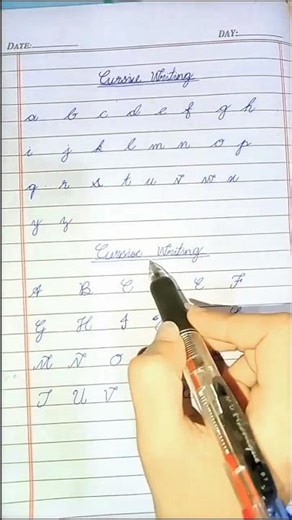 DATE: DAY:
Cursive Writing
a b c d e f g h
i j k l m n o p
q r s t u v w x
y z
Cursive Writing
A B C E F
G H I
M N O
T U V